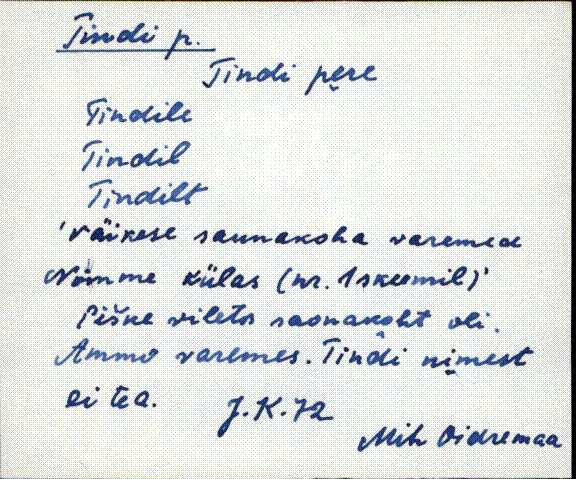 Tindi p.
Tindi pere
Tindile
Tindil
Tindilt
'Väikese saunakoha varemed
Nõmme külas (nr. 1 skeemil)'
Piške vilets saonakoht oli.
Ammo varemes. Tindi nimest
ei tea. J.K.72
Mih Oidremaa